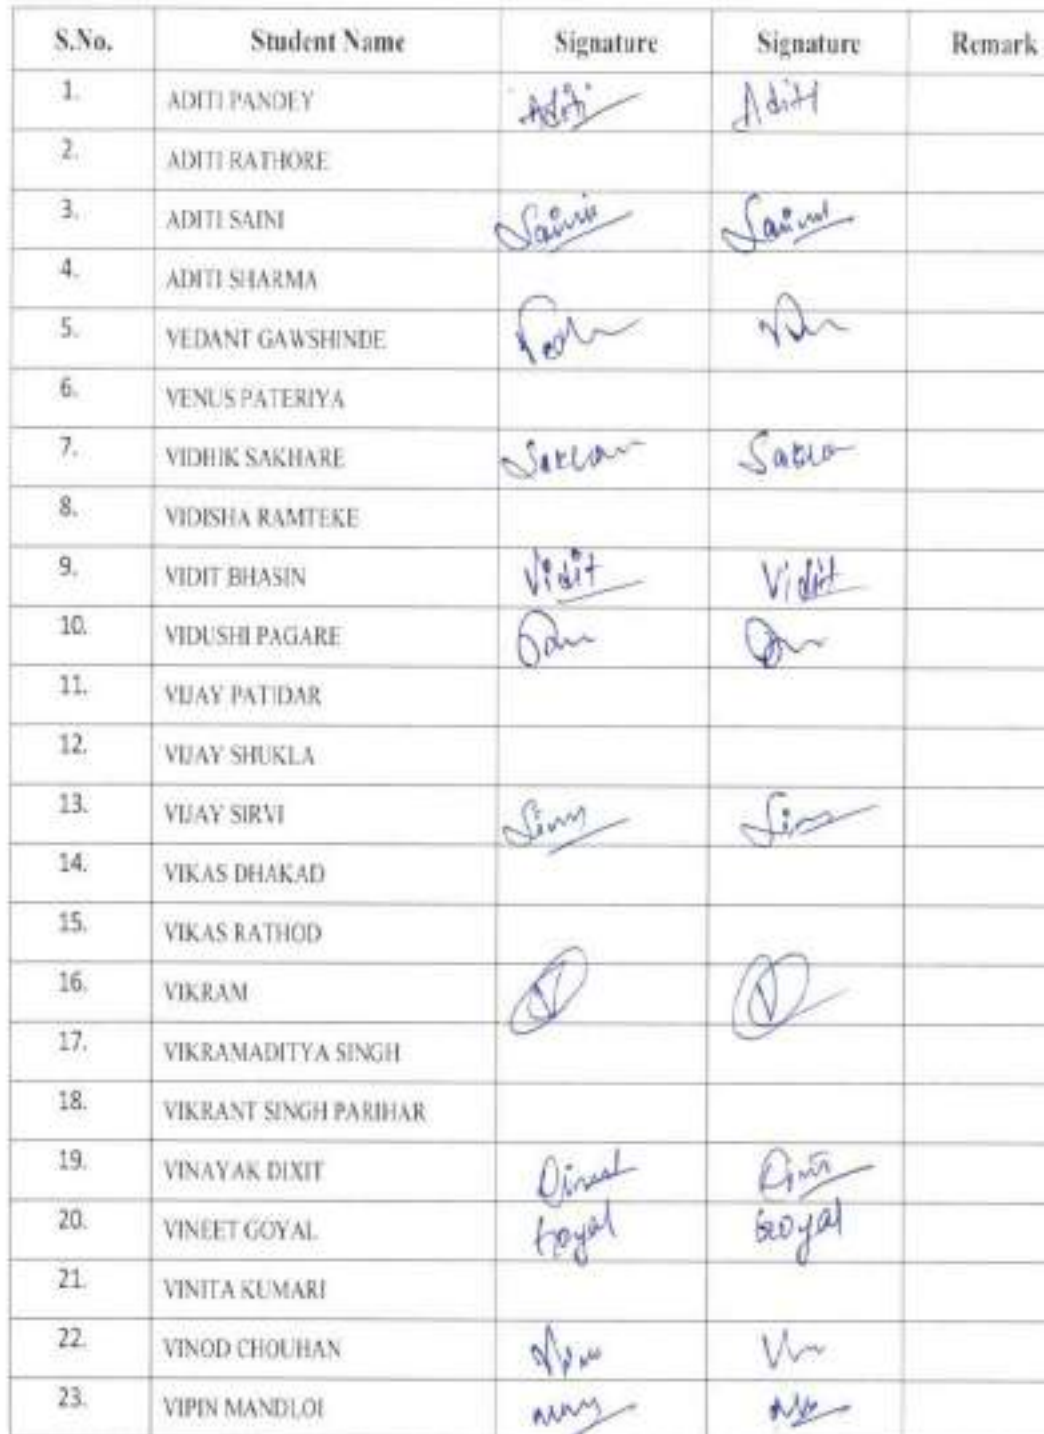 S.No. Student Name Signature Signature Remark
1. ADITI PANDEY Aditi Aditi
2. ADITI RATHORE
3. ADITI SAINI
4. ADITI SHARMA
5. VEDANT GAWSHINDE
6. VENUS PATERIYA
7. VIDHIK SAKHARE
8. VIDISHA RAMTEKE
9. VIDIT BHASIN Vidit Vidit
10. VIDUSHI PAGARE
11. VIJAY PATIDAR
12. VIJAY SHUKLA
13. VIJAY SIRVI
14. VIKAS DHAKAD
15. VIKAS RATHOD
16. VIKRAM V V
17. VIKRAMADITYA SINGH
18. VIKRANT SINGH PARIHAR
19. VINAYAK DIXIT
20. VINEET GOYAL Goyal Goyal
21. VINITA KUMARI
22. VINOD CHOUHAN
23. VIPIN MANDLOI